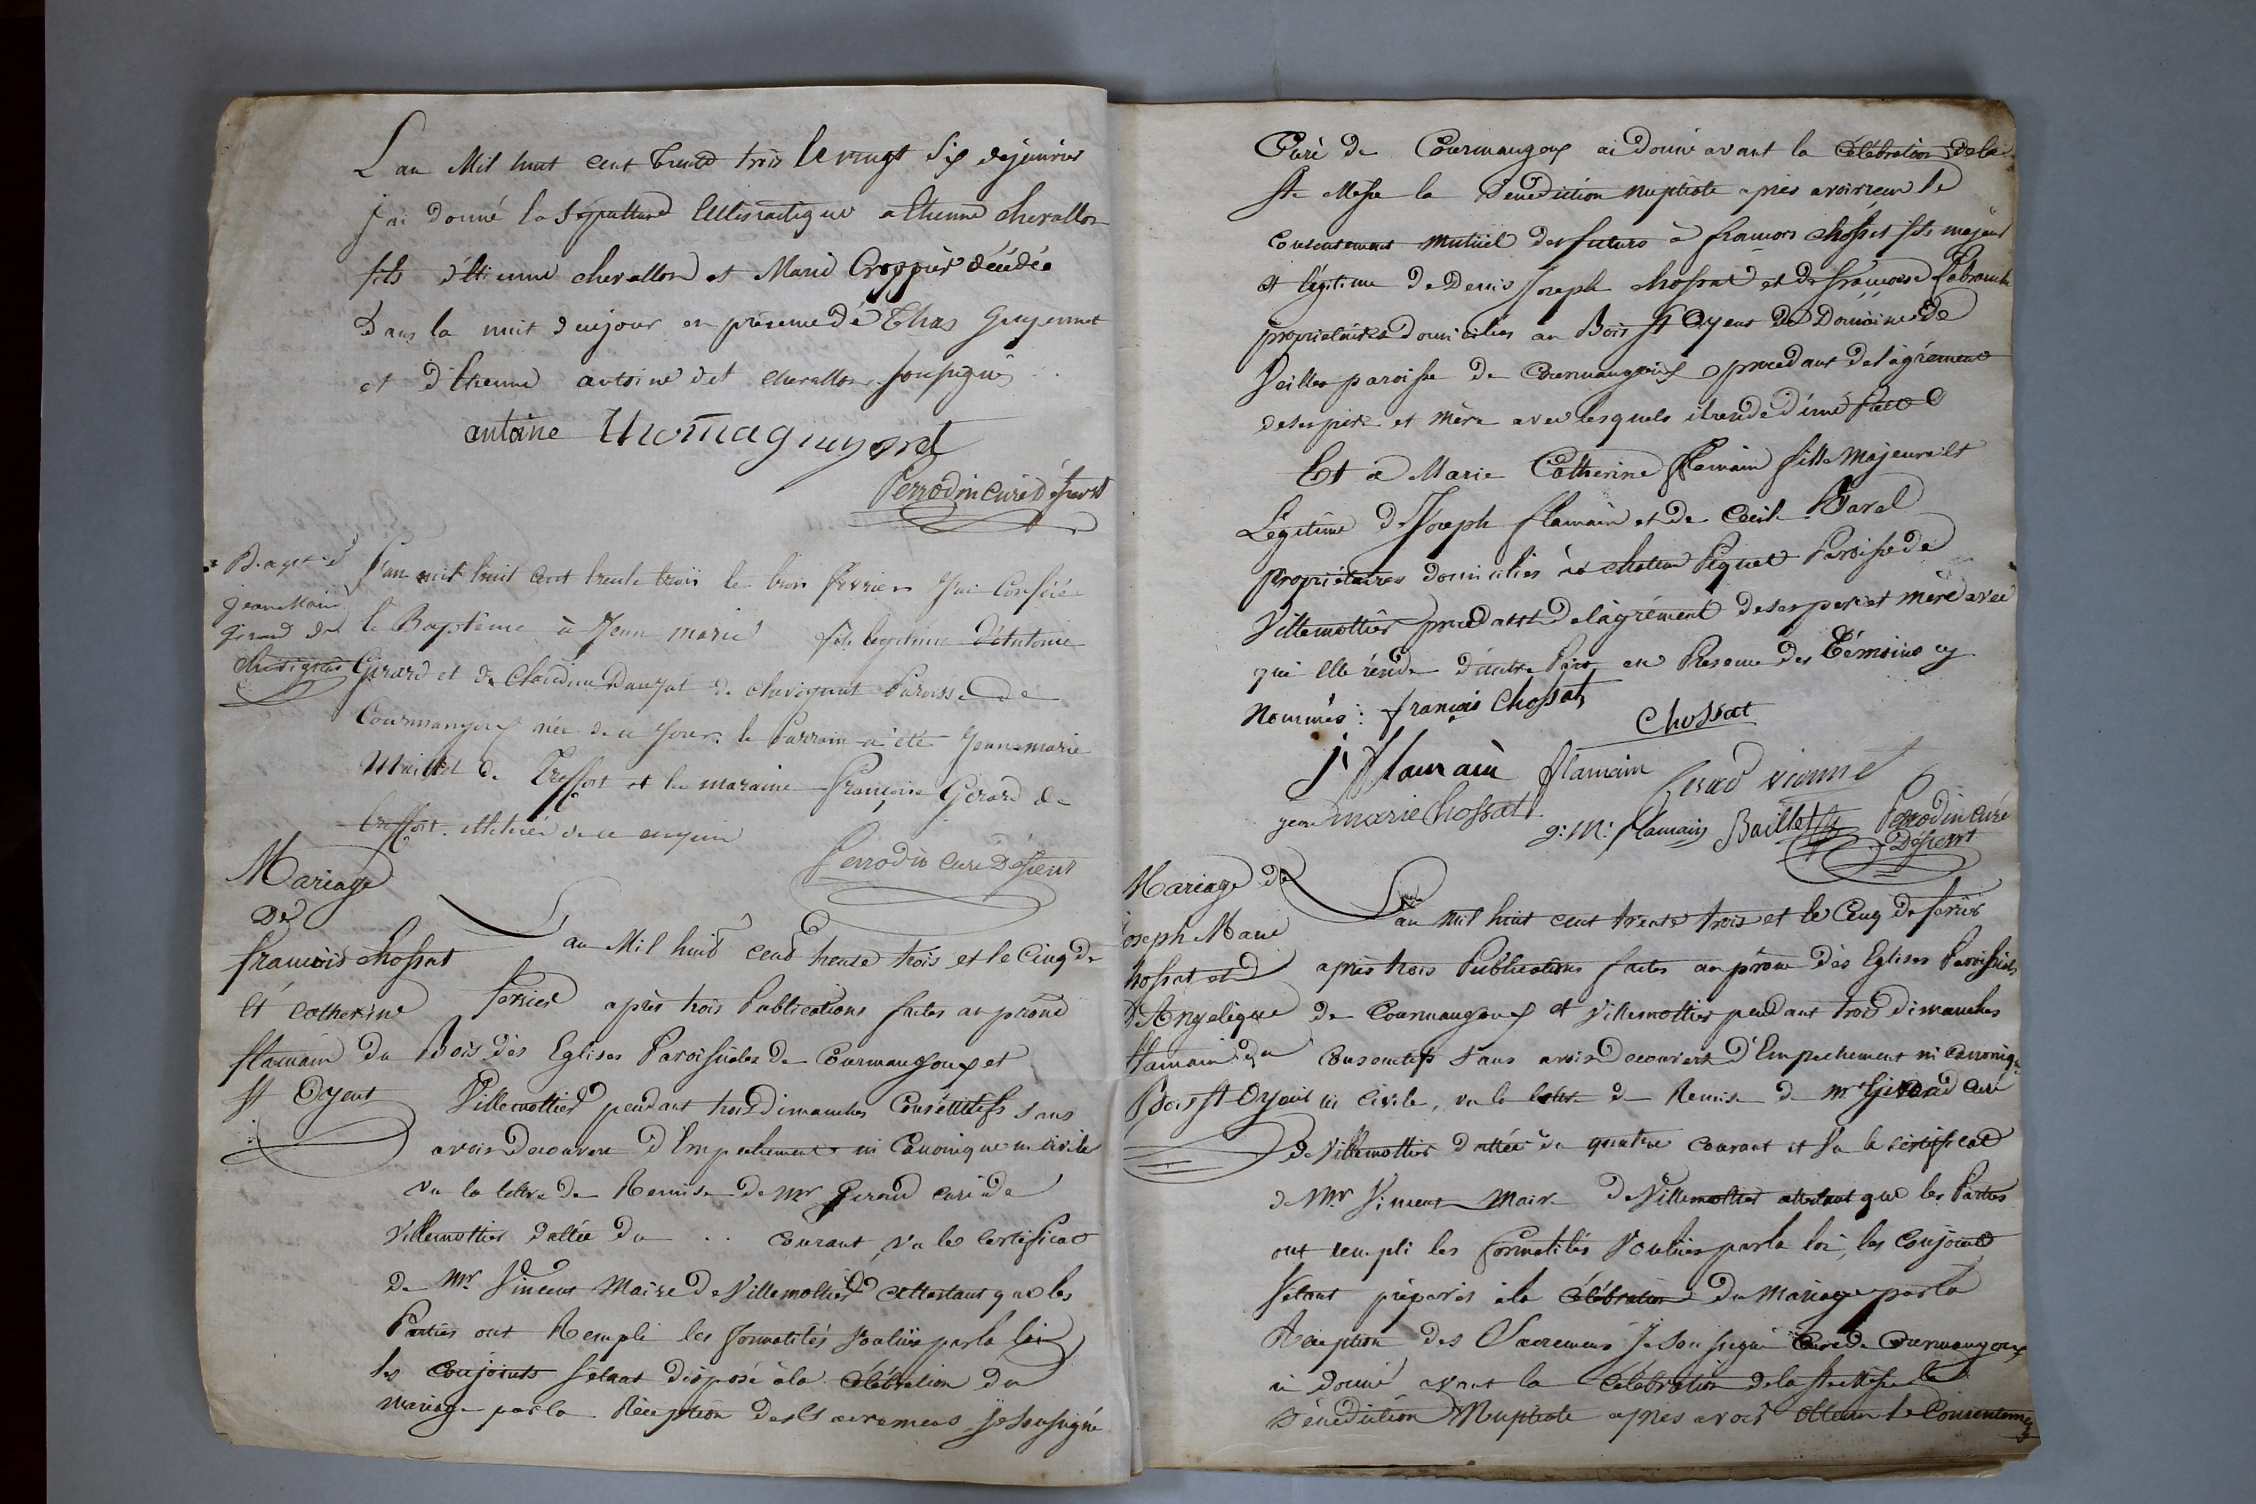 L'an Mil huit cent trente trois le vingt six dejanvier
j'ai donné la sépulture Ecclésiastique a Etienne chevallon
fils d'Etienne chevallon et Marie Croppier décédée
Dans la nuit du jour en présence de Thas Guyennet
et d'Etienne antoine dit chevallon soussignés
antoine Thomaguyonet
Perrodin curé d
Bapt. d
Jean Marie
Girard de
chevignat
L'an mil huit cent trente trois le trois fevrier J'ai Conféré
le Baptême à Jean marie fils légitime d'Antoine
Girard et de Claudine Danjat de chevignat Paroisse de
Courmangoux née de ce Jour. le Parrain a été Jean-marie
de Treffort et la maraine Françoise Girard de
treffort
Perrodin Curé Déservt
Mariage
De
françois chossat
et catherine
flamain du Bois
St Oyent
L'an Mil huit cent trente trois et le Cinq de
fevrier après trois Publications faites au prône
des Eglises Paroissiales de Courmangoux et
Villemottier pendant trois dimanches Consécutifs sans
avoir decouvert d'Empechement ni Canonique ni civile
vu la lettre de Remise de Mr Geraud curé de
Villemottier dattée du .. courant, vu le certificat
de Mr. Vincent Maire de Villemottier attestant que les
Parties ont Rempli les formalités voulües par la loi
les conjoints s'étant disposé à la célébration du
mariage par la Réception des Sacremens Je Soussigné
Curé de Courmangoux ai donné avant la célébration de la
Ste Messe la Bénédiction nuptiale après avoir reçu le
consentement mutüel des futurs à françois chossat fils majeur
et légitime de Denis Joseph chossat et de françoise Labranche
propriétaires domiciliés au Bois St Oyent Du Domaine de
paroisse de Courmangoux procedant de l'agrément
de ses père et mère avec lesquels il reside d'une Part
Et à Marie Catherine flamain fille Majeure et
Légitime de Joseph flamain et de Cecile Bavel
Propriétaires domiciliés à chateau Piquet Paroisse de
Villemottier procedant de l'agrément de ses pere et mère avec
qui elle réside d'autre Part en Présence des Témoins cy
Nommés : françois Chossat
Chossat
j. flamain flamain
jean marie chossat
j: M: flamain Baillet Perrodin curé
Déservt
Mariage de
Joseph Marie
Chossat et d
D'Angelique
flamain du
Bois St Oyent
L'an Mil huit cent trente trois et le Cinq de fevrier
après trois Publications faites au prône des Eglises Paroissiales
de Courmangoux et Villemottier pendant trois dimanches
Consécutifs sans avoir decouvert d'Empechement ni canonique
ni Civile, vu la lettre de Remise de Mr Giraud curé
de Villemottier dattée du quatre courant et vu le certificat
de Mr. Vincent Maire de Villemottier attestant que les Parties
ont rempli les formalités voulües par la loi, les conjoints
s'étant préparés à la célébration du Mariage par la
Réception des Sacremens Je soussigné Curé de Courmangoux
ai donné avant la célébration de la Ste Messe la
Bénédiction Nuptiale après avoir obtenu le Consentement